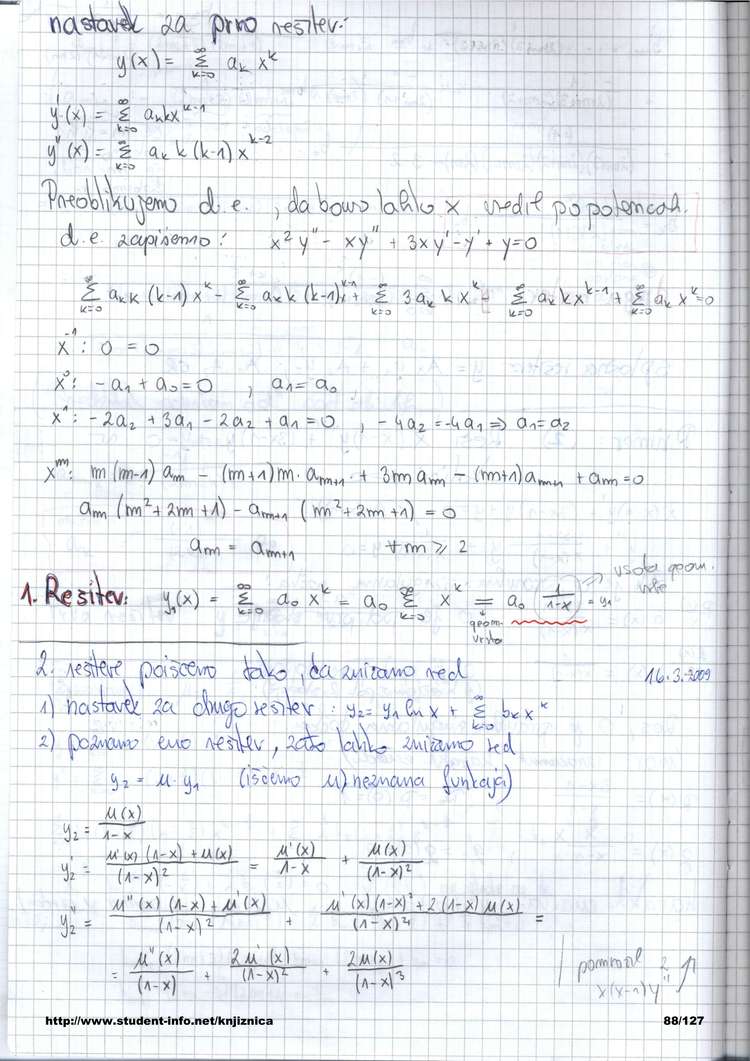 nastavek za prvo rešitev:
y(x) = ∞Σk=0 aₖ xᵏ
y'(x) = ∞Σk=0 aₖkxᵏ⁻¹
y''(x) = ∞Σk=0 aₖ k(k-1)xᵏ⁻²
Preoblikujemo d.e., da bomo lahko x uredil po potencah.
d.e. zapišemo: x²y'' - xy'' + 3xy' - y' + y = 0
∞Σk=0 aₖk(k-1)xᵏ - ∞Σk=0 aₖk(k-1)xᵏ⁻¹ + ∞Σk=0 3aₖkxᵏ - ∞Σk=0 aₖkxᵏ⁻¹ + ∞Σk=0 aₖxᵏ = 0
x⁻¹: 0 = 0
x⁰: -a₁ + a₀ = 0 , a₁ = a₀
x¹: -2a₂ + 3a₁ - 2a₂ + a₁ = 0 , -4a₂ = -4a₁ ⇒ a₁ = a₂
xᵐ: m(m-1)aₘ - (m+1)m·aₘ₊₁ + 3maₘ - (m+1)aₘ₊₁ + aₘ = 0
aₘ(m²+2m+1) - aₘ₊₁(m²+2m+1) = 0
aₘ = aₘ₊₁ ∀m ≥ 2
1. Rešitev: y₁(x) = ∞Σk=0 a₀xᵏ = a₀ ∞Σk=0 xᵏ = a₀ 1/(1-x) = y₁
geom. vrsta
vsota geom. vrste
2. rešitev poiščemo tako, da znižamo red
16.3.2009
1) nastavek za drugo rešitev: y₂ = y₁ ln x + ∞Σk=0 bₖxᵏ
2) poznamo eno rešitev, zato lahko znižamo red
y₂ = u·y₁ (iščemo u) neznana funkcija)
y₂ = u(x)/(1-x)
y₂' = (u'(x)(1-x) + u(x))/(1-x)² = u'(x)/(1-x) + u(x)/(1-x)²
y₂'' = (u''(x)(1-x) + u'(x))/(1-x)² + (u'(x)(1-x)² + 2(1-x)u(x))/(1-x)⁴ =
= u''(x)/(1-x) + 2u'(x)/(1-x)² + 2u(x)/(1-x)³
x(x-1)y''
http://www.student-info.net/knjiznica
88/127